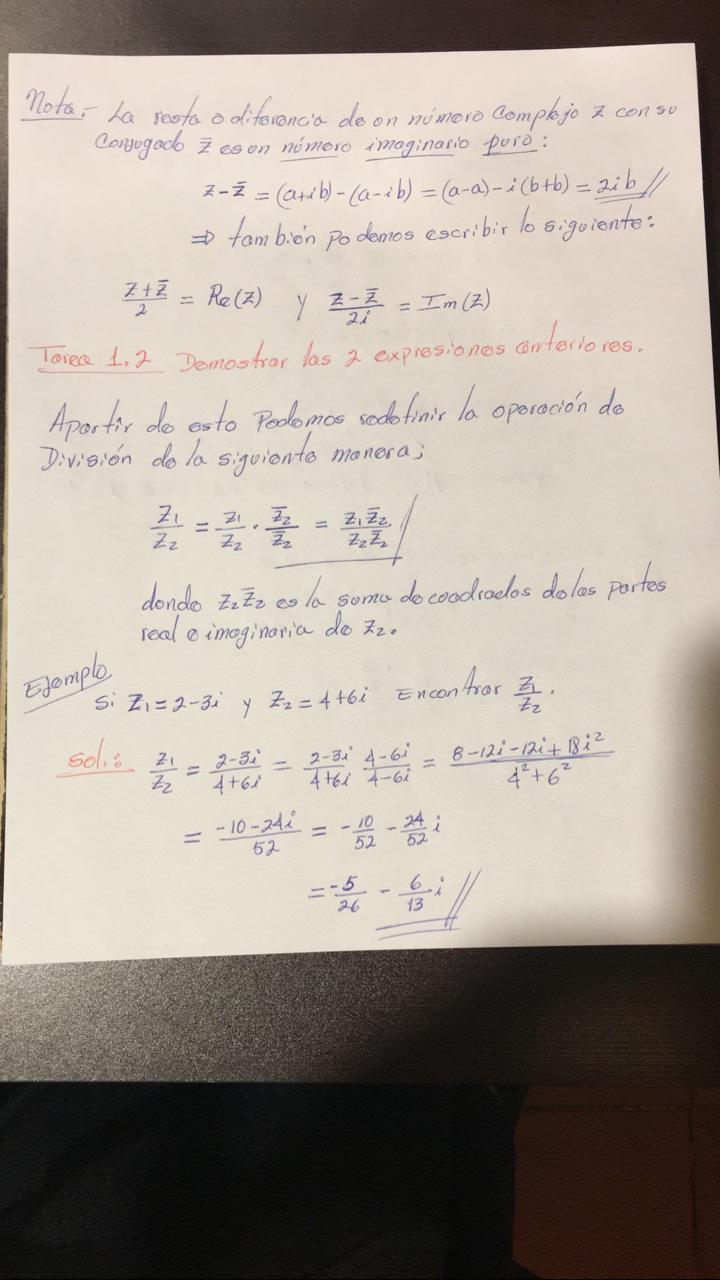 Nota.- La resta o diferencia de un número Complejo z con su
Conjugado z̄ es un número imaginario puro:
z - z̄ = (a+ib) - (a-ib) = (a-a) - i(b+b) = 2ib //
⇒ también podemos escribir lo siguiente:
(z + z̄)/2 = Re(z) y (z - z̄)/2i = Im(z)
Tarea 1.2 Demostrar las 2 expresiones anteriores.
Apartir de esto Podemos redefinir la operación de
División de la siguiente manera;
z₁/z₂ = z₁/z₂ · z̄₂/z̄₂ = z₁z̄₂/z₂z̄₂ /
donde z₂z̄₂ es la suma de cuadrados de las partes
real e imaginaria de z₂.
Ejemplo
Si z₁ = 2-3i y z₂ = 4+6i Encontrar z₁/z₂.
Sol.: z₁/z₂ = (2-3i)/(4+6i) = (2-3i)/(4+6i) (4-6i)/(4-6i) = (8-12i-12i+18i²)/(4²+6²)
= (-10-24i)/52 = -10/52 - 24/52 i
= -5/26 - 6/13 i //